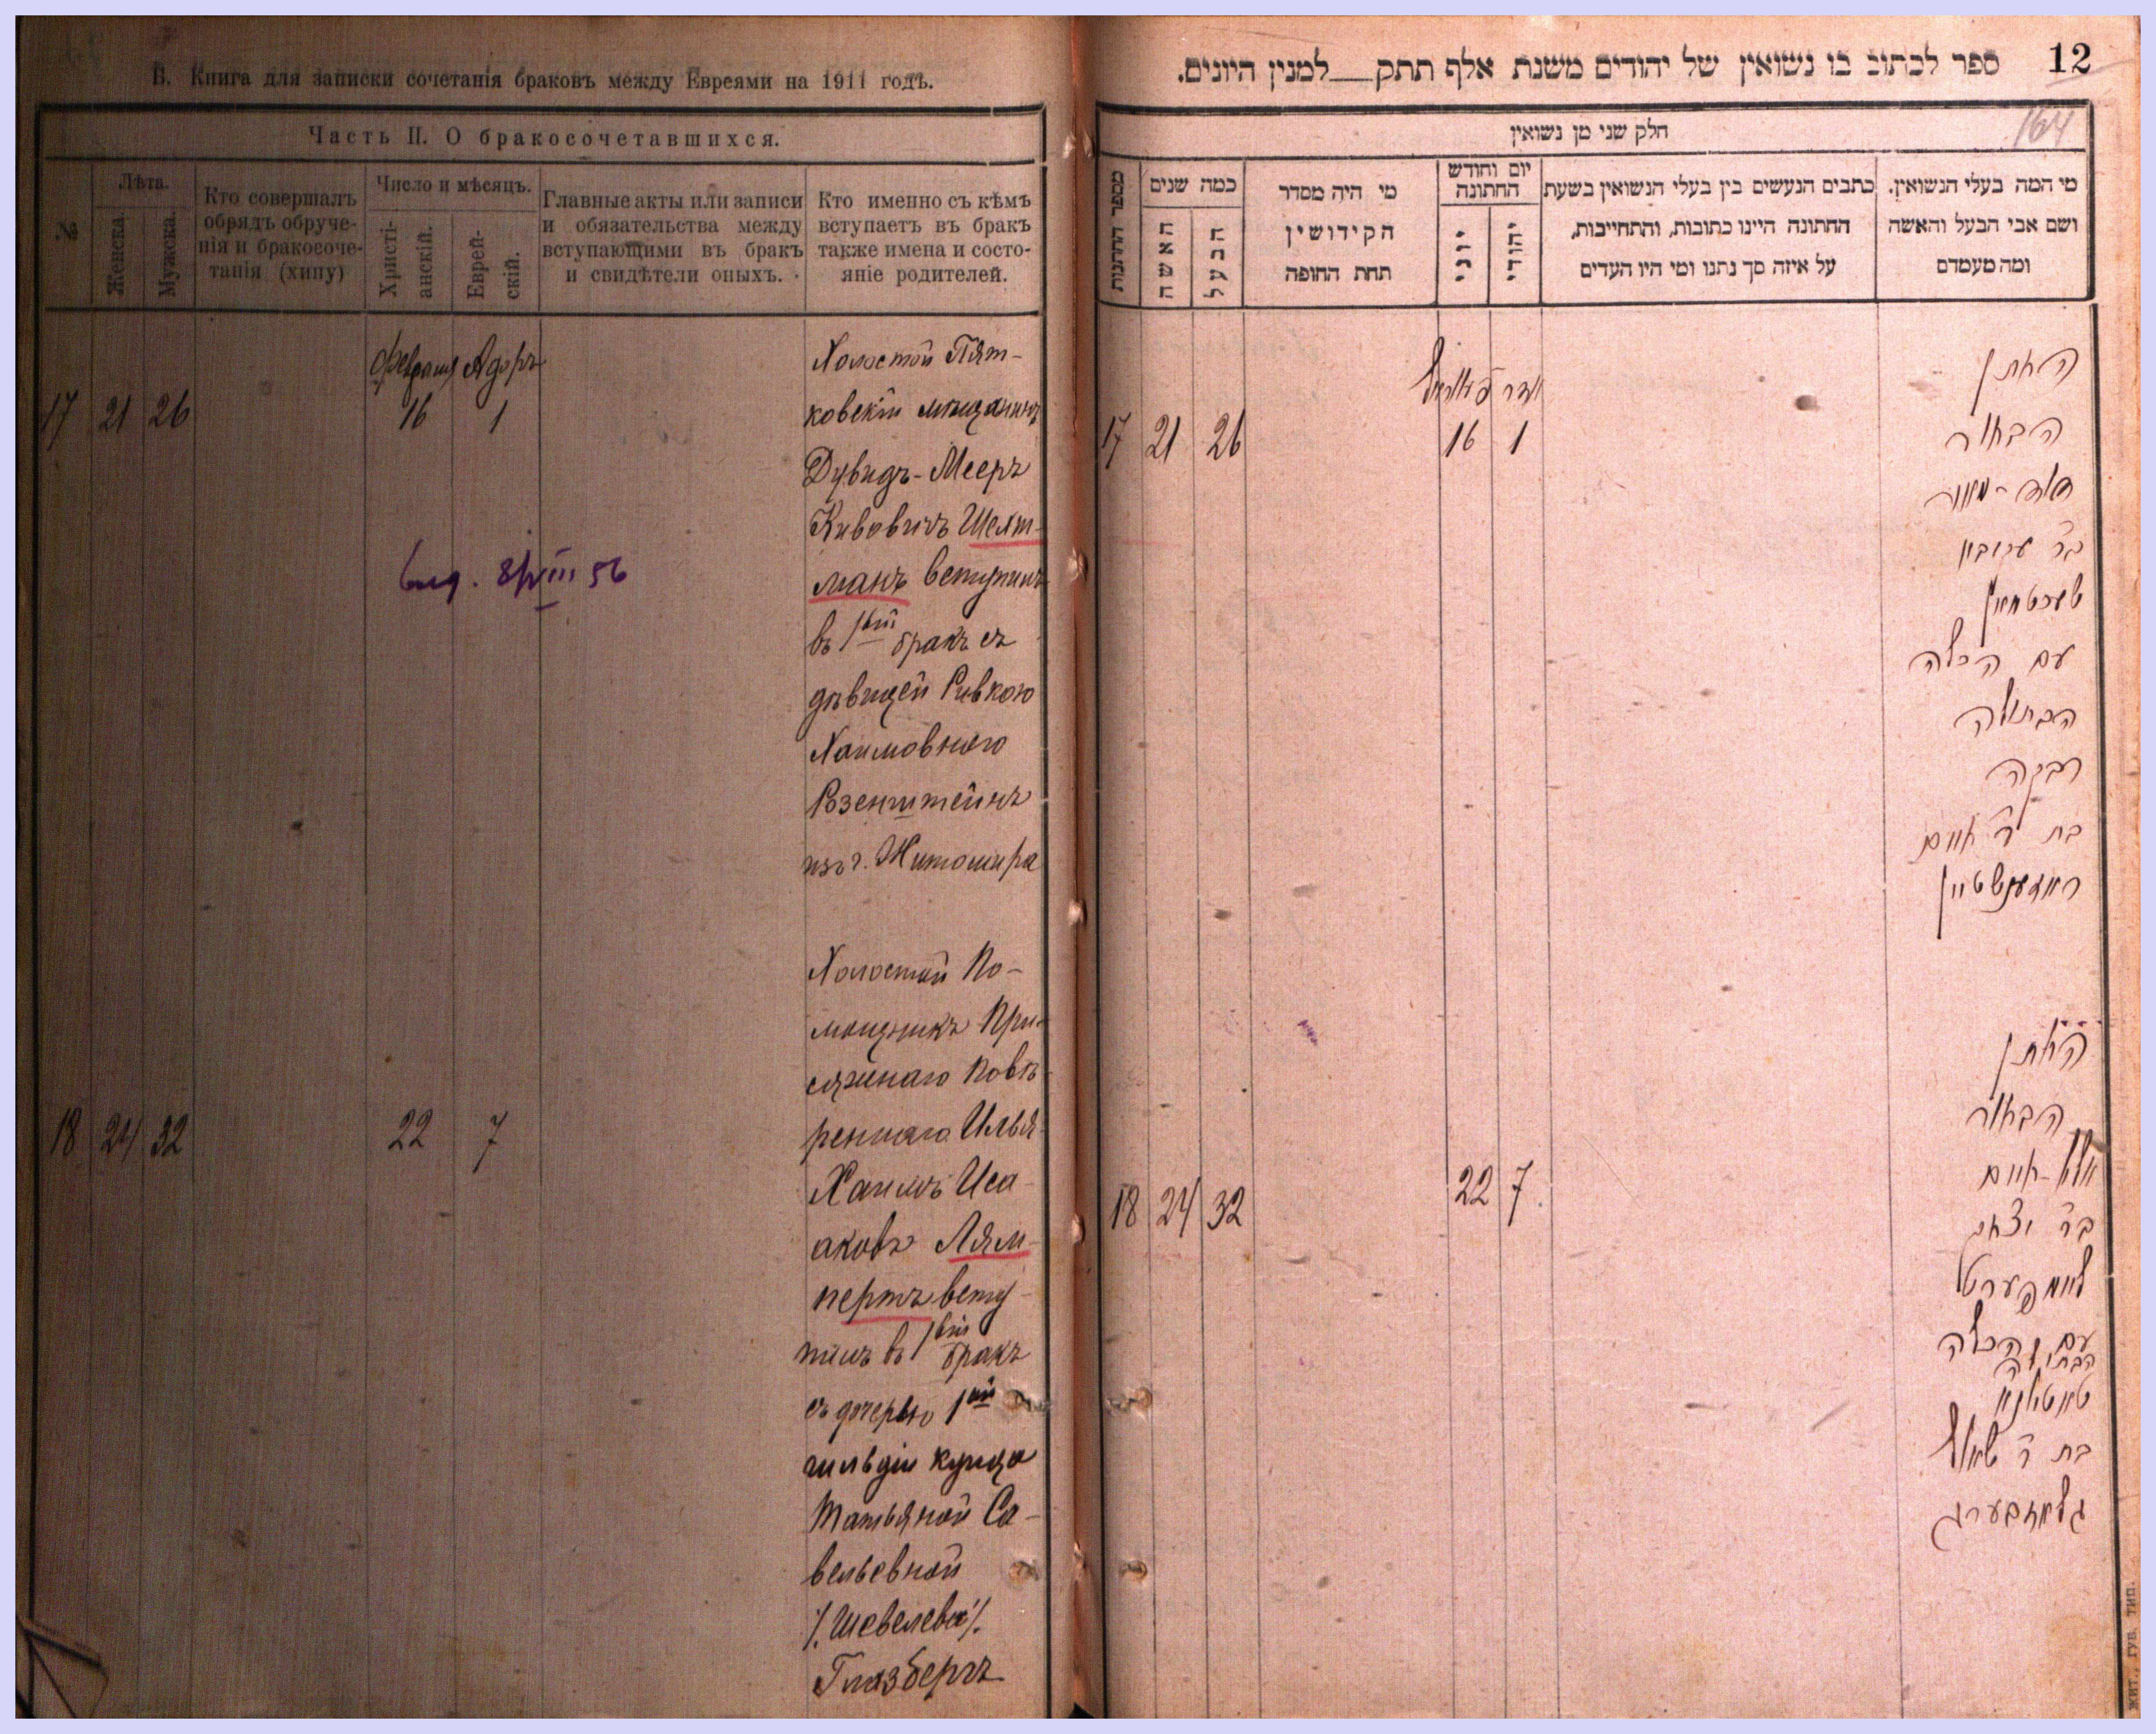 В. Книга для записки сочетанія браковъ между Евреями на 1911 годъ.
Часть II. О бракосочетавшихся.
№
Лѣта.
Женска.
Мужска.
Кто совершалъ
обрядъ обруче-
нія и бракосоче-
танія (хипу)
Число и мѣсяцъ.
Христі-
анскій.
Еврей-
скій.
Главные акты или записи
и обязательства между
вступающими въ бракъ
и свидѣтели оныхъ.
Кто именно съ кѣмъ
вступаетъ въ бракъ
также имена и состо-
яніе родителей.
Февраля Адоръ
17 21 26 16 1
Холостой Пят-
ковскій мѣщанинъ
Дувидъ-Мееръ
Кивовичъ Шехт-
манъ вступилъ
въ 1вый бракъ съ
дѣвицей Ривкою
Хаимовною
Розенштейнъ
изъ г. Житомира
выд. 8/VIII 56
18 24 32 22 7
Холостой По-
мощникъ При-
сяжнаго Повѣ-
реннаго Илья-
Хаимъ Иса-
аковъ Лям-
пертъ всту-
пилъ въ 1вый бракъ
съ дочерью 1ой
гильдіи купца
Татьяной Са-
вельевной
/.Шевелева/.
Глазбергъ
12
ספר לכתוב בו נשואין של יהודים משנת אלף תתק למנין היונים.
164
חלק שני מן נשואין
מספר החתנות
כמה שנים
האשה
הבעל
מי היה מסדר
הקידושין
תחת החופה
יום וחודש
החתונה
יוני
יהודי
כתבים הנעשים בין בעלי הנשואין בשעת
החתונה היינו כתובות, והתחייבות,
על איזה סך נתנו ומי היו העדים
מי המה בעלי הנשואין.
ושם אבי הבעל והאשה
ומה מעמדם
אדר
17 21 26 16 1
החתן
הבחור
דוד-מאיר
בר עקיבא
שעכטמאן
עם הכלה
הבתולה
רבקה
בת לר חיים
ראזענשטיין
18 24 32 22 7
החתן
הבחור
אלי-חיים
בר יצחק
ליאמפערט
עם הכלה
הבתולה
טאטאנא
בת ר שאול
גלאזבערג
ЖИТ., ГУБ. ТИП.